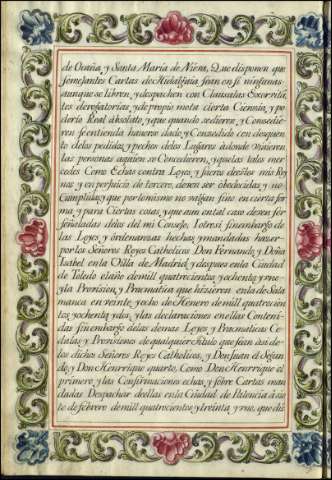 de Ocaña, y Santa Maria de Nieva, Que disponen que
semejantes Cartas de Hidalguia, sean en si ningunas
aunque se libren, y despachen con Clausulas Exorvitã,
tes derogatorias, y de propio motu cierta Ciencia, y po,
derio Real absoluto, y que quando se dieren, y Consedie,
ren se entienda haverse dado, y Consedido con desquen
to de los pedidos, y pechos de los Lugares á donde Vivieren
las personas aquien se Concedieren, y que las tales mer
cedes Como Echas contra Leyes, y fueros de estos mis Rey
nos y en perjuicio de tercero, deven ser obedecidas y no
Cumplidas, y que por lo mismo no valgan sino en cierta for
ma, y para Ciertas cosas, y que aun en tal caso deven ser
señaladas de los del mi Consejo, Y otrosi sin embargo de
las Leyes, y Ordenansas hechas, y mandadas haser
por los Señores Reyes Catholicos Don Fernando, y Doña
Isabel en la Villa de Madrid, y despues en la Ciudad
de Toledo el año de mill quatrecientos y ochenta, y nue
y la Provision, y Pracmatica que hisieron en la de Sala
manca en veinte, y ocho de Henero de mill quatrecien
tos, y ochenta, y dos, y las declaraciones en ellas Conteni,
das sin embargo de las demas Leyes, y Pracmaticas Ce
dulas, y Provisiones de qualquier titulo que sean asi de
los dichos Señores Reyes Catholicos, y Don Juan el Segun
do, y Don Henrrique quarto, Como Don Henrrique el
primero, y las Confirmaciones echas, y sobre Cartas man
dadas Despachar de ellas en la Ciudad de Palencia á sie
te de febrero de mill quatrecientos, y treinta, y uno, que dis